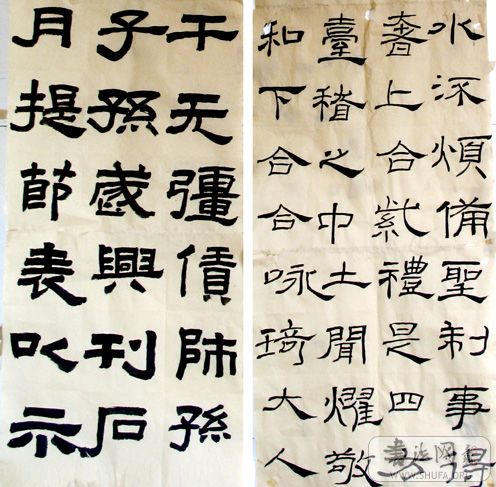 水煩備聖制事得
奢上合紫禮是四
臺稽之中土聞燿敬
和下合合咏琦大人
于无彊債師孫
子孫盛興刊石
月提節表以示
書法网
WWW.SHUFA.ORG